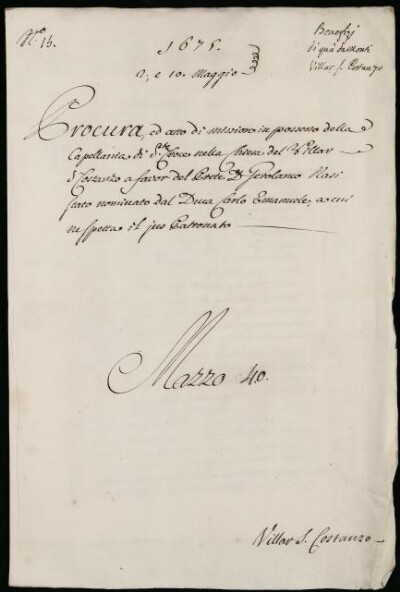 N.º 14.
Beneficj
di quà da Monti
Villar S. Costanzo
1675.
2, e 10. Maggio
Procura, ed atto di missione in possesso della
Capellania di S.ta Croce nella Chiesa del Villar
S. Costanzo a favor del Prete D. Gerolamo Nasi
stato nominato dal Duca Carlo Emanuele, a cui
ne spetta il jus Patronato
Mazzo 40.
Villar S. Costanzo